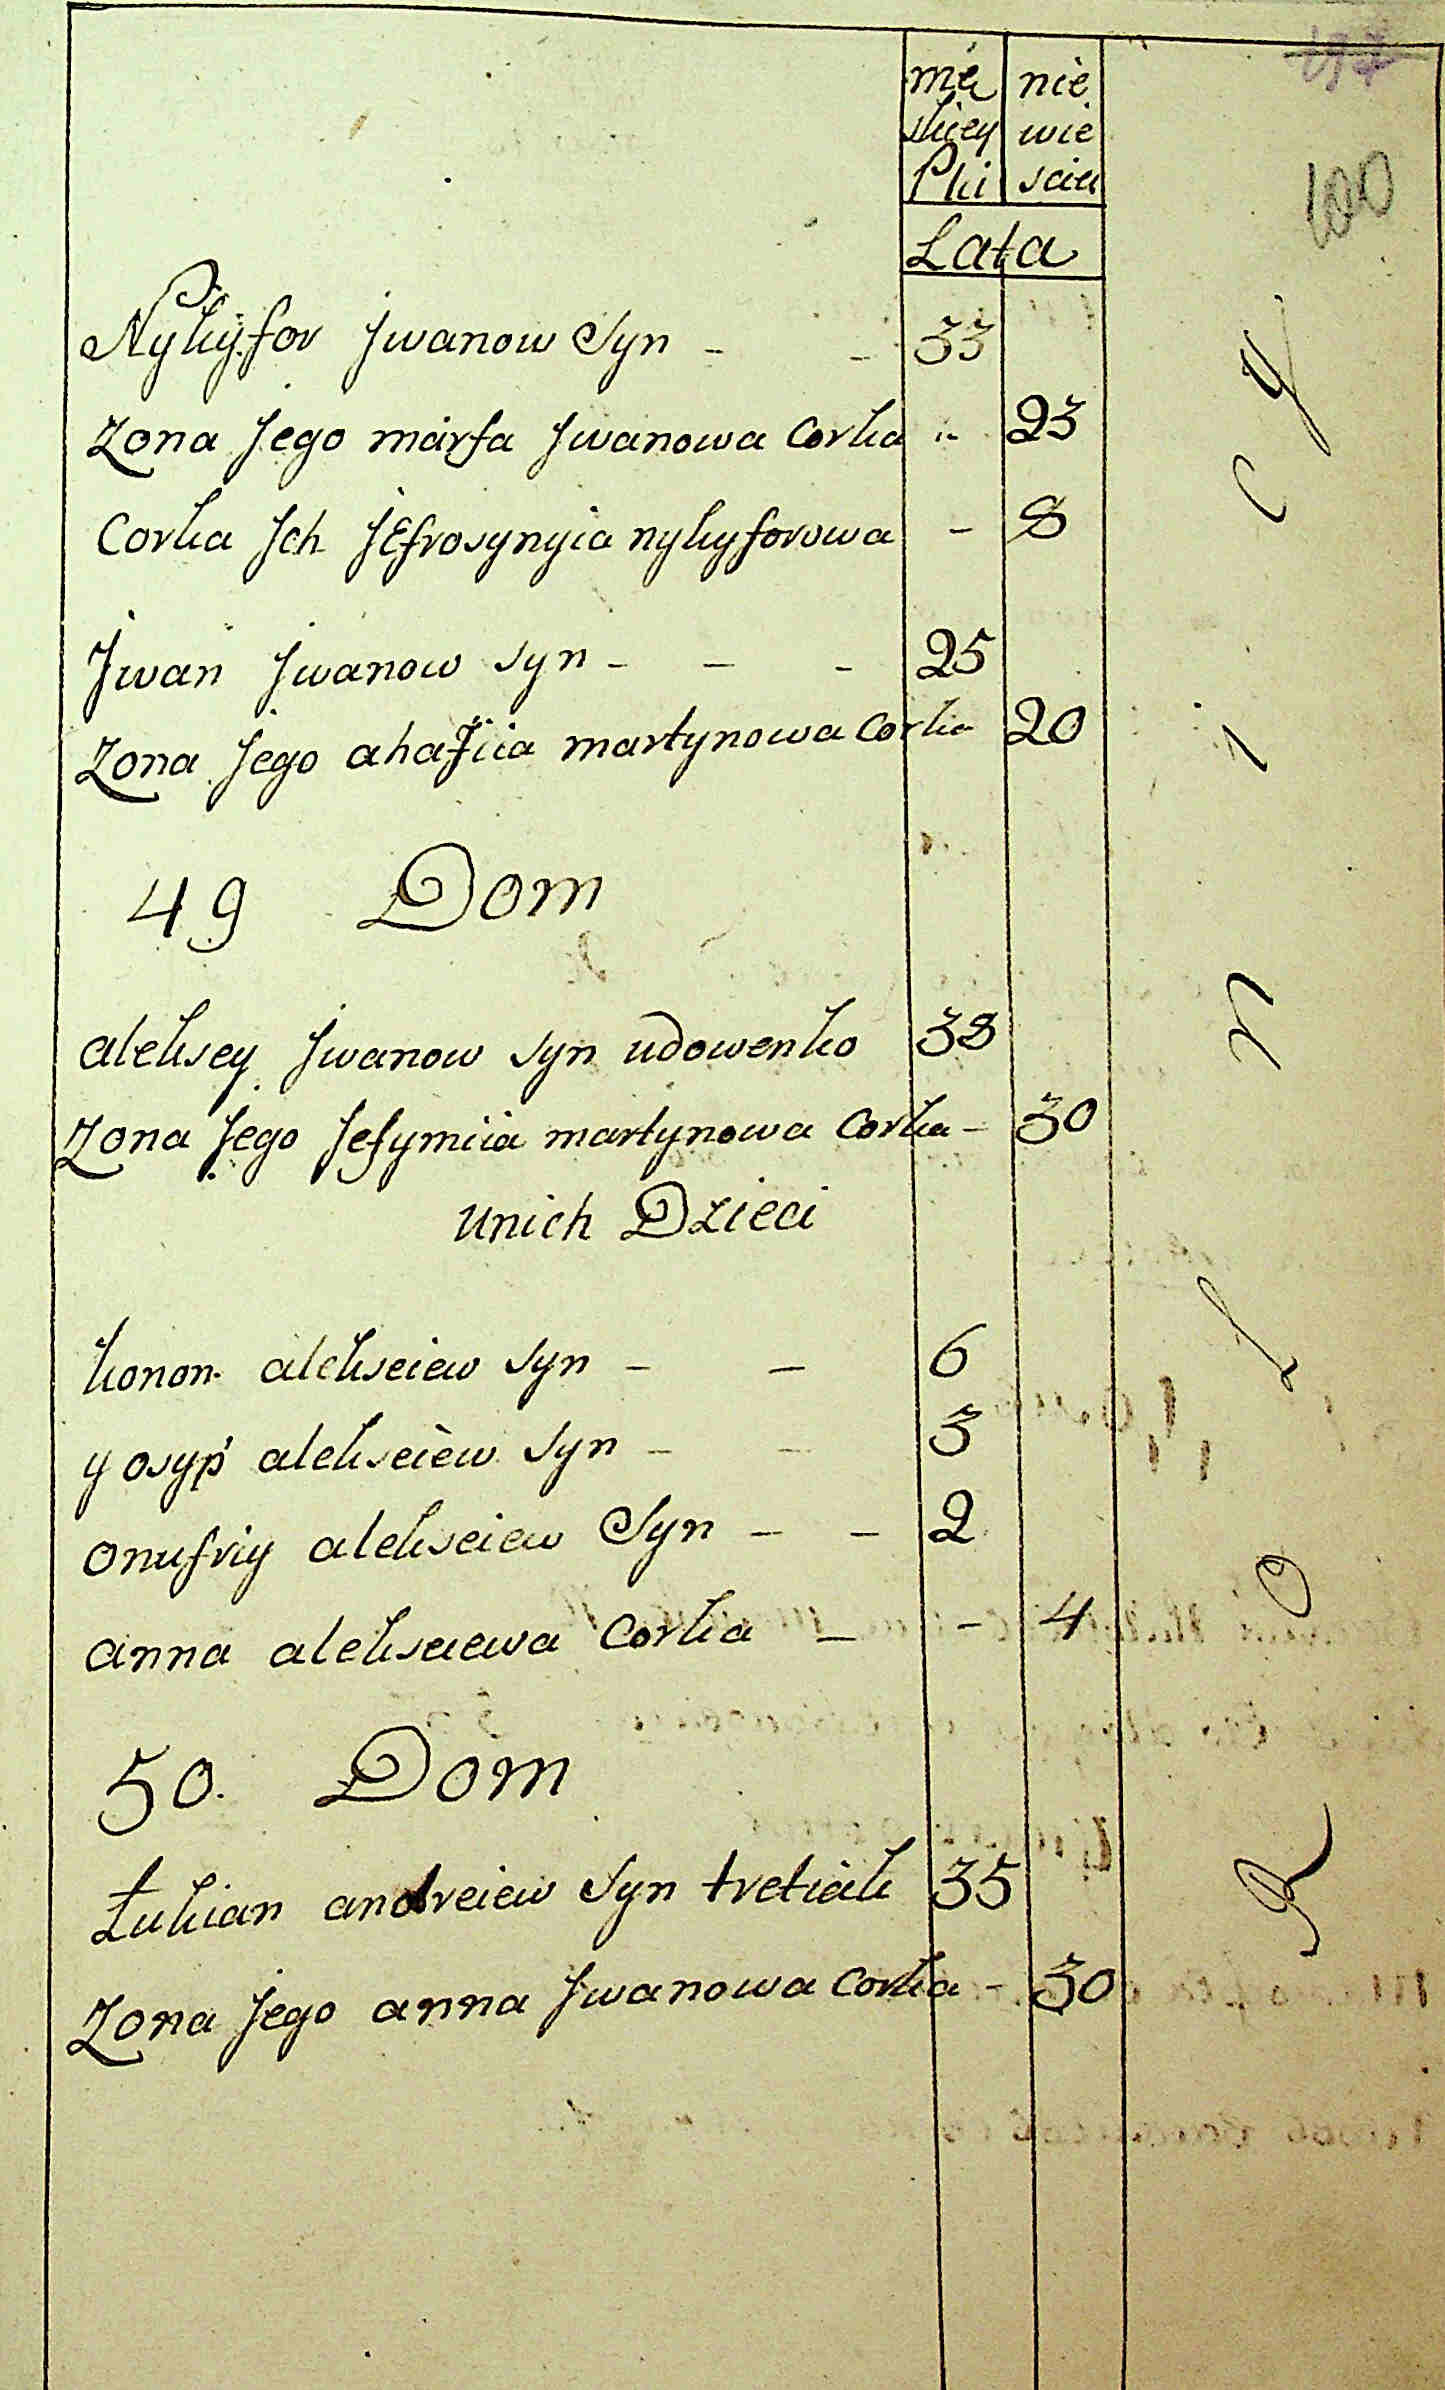 mę nie
skiey wie
Płci sciey
Lata
100
Nykyfor Jwanow Syn - - 33
Zona Jego marfa Jwanowa Corka - 23
Corka Jch JEfrosynyia nykyforowa - 8
Jwan Jwanow syn - - - 25
Zona Jego ahafiia martynowa Corka 20
49 Dom
aleksey Jwanow syn udowenko 38
Zona Jego Jefymiia martynowa Corka - 30
unich Dzieci
konon alekseiew syn - - 6
yosyp alekseiew syn - - 3
onufriy alekseiew Syn - - 2
anna alekseiewa Corka - - 4
50. Dom
Łukian andreiew Syn tretiak 35
Zona Jego anna Jwanowa Corka - 30
Rolnicy